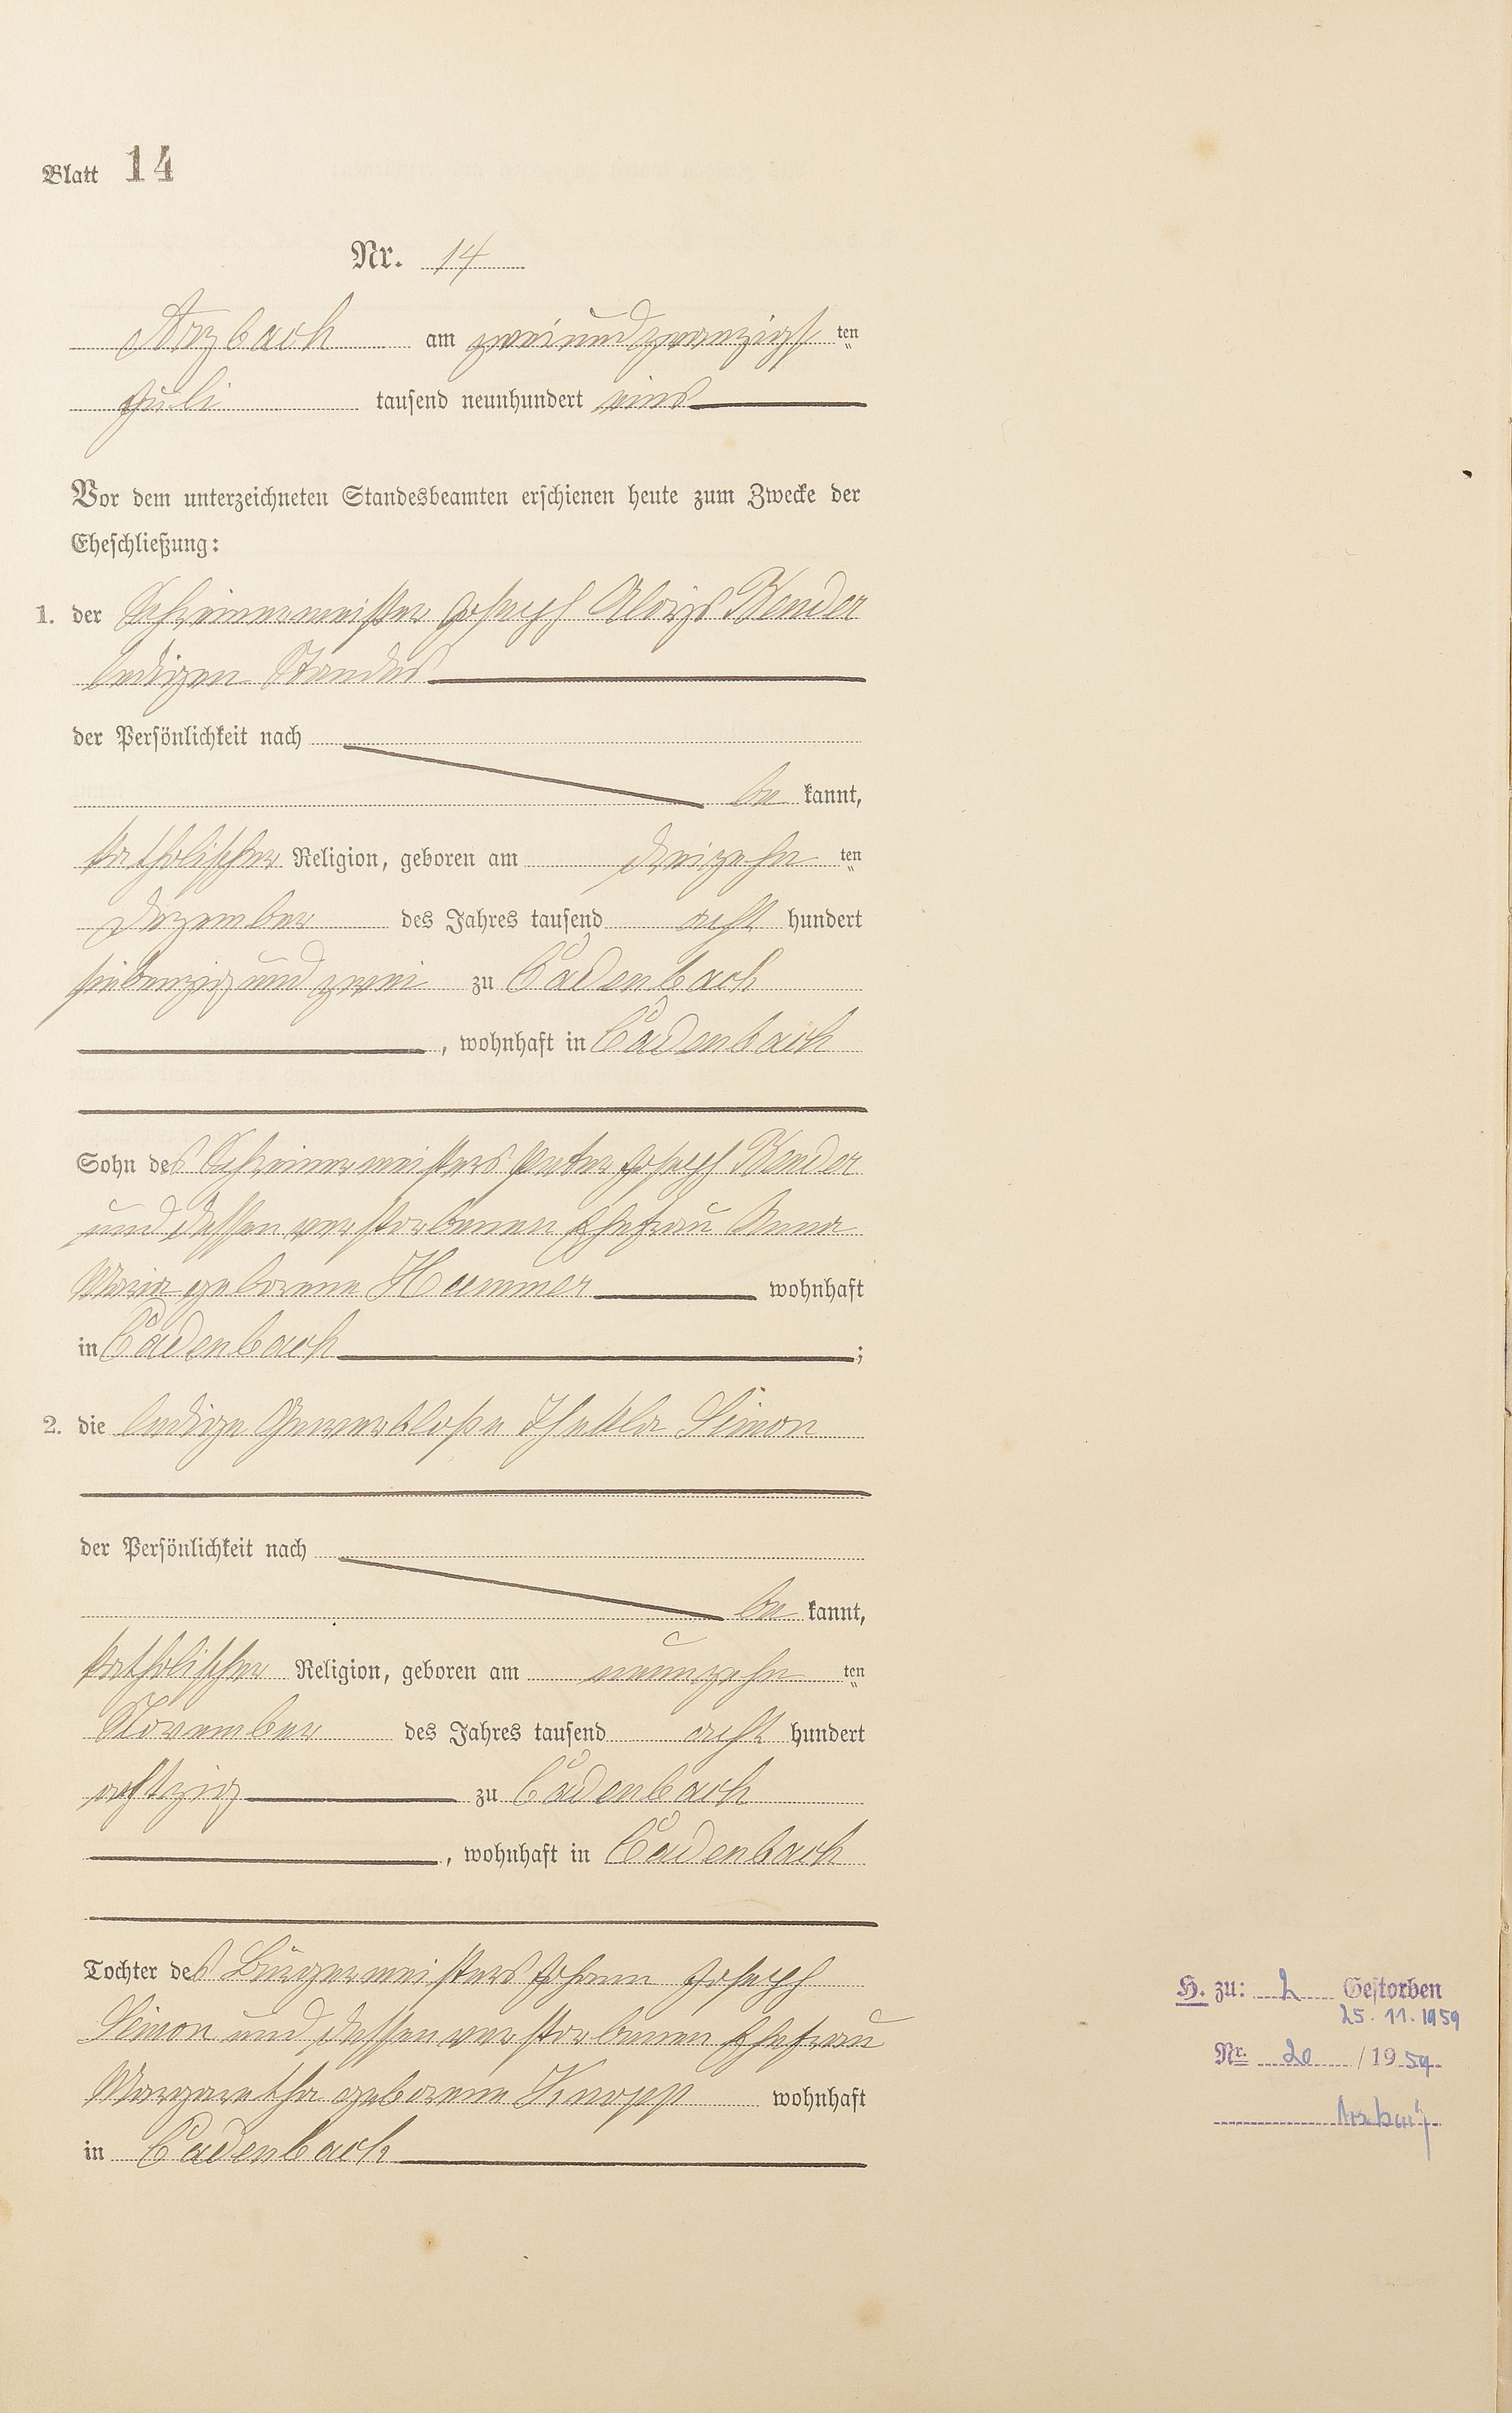 Blatt 14
Nr. 14
Arzbach am zweiundzwanzigst ten
Juli tausend neunhundert eins
Vor dem unterzeichneten Standesbeamten erschienen heute zum Zwecke der
Eheschließung:
1. der Schreinermeister Joseph Aloijs Bender
ledigen Standes
der Persönlichkeit nach
be kannt,
katholischer Religion, geboren am dreizehn ten
Dezember des Jahres tausend acht hundert
siebenzig und zwei zu Cadenbach
, wohnhaft in Cadenbach
Sohn des Schreinermeisters Peter Joseph Bender
und dessen verstorbenen Ehefrau Anna
Maria geborene Hammer wohnhaft
in Cadenbach ;
2. die ledige Gewerblose Thekla Simon
der Persönlichkeit nach
be kannt,
katholischer Religion, geboren am neunzehn ten
November des Jahres tausend acht hundert
achtzig zu Cadenbach
, wohnhaft in Cadenbach
Tochter des Bürgermeisters Johann Joseph
Simon und dessen verstorbenen Ehefrau
Margaretha geborene Knopp wohnhaft
in Cadenbach
H. zu: 2 Gestorben
25. 11. 1959
Nr. 20 / 19 59
Arzbach